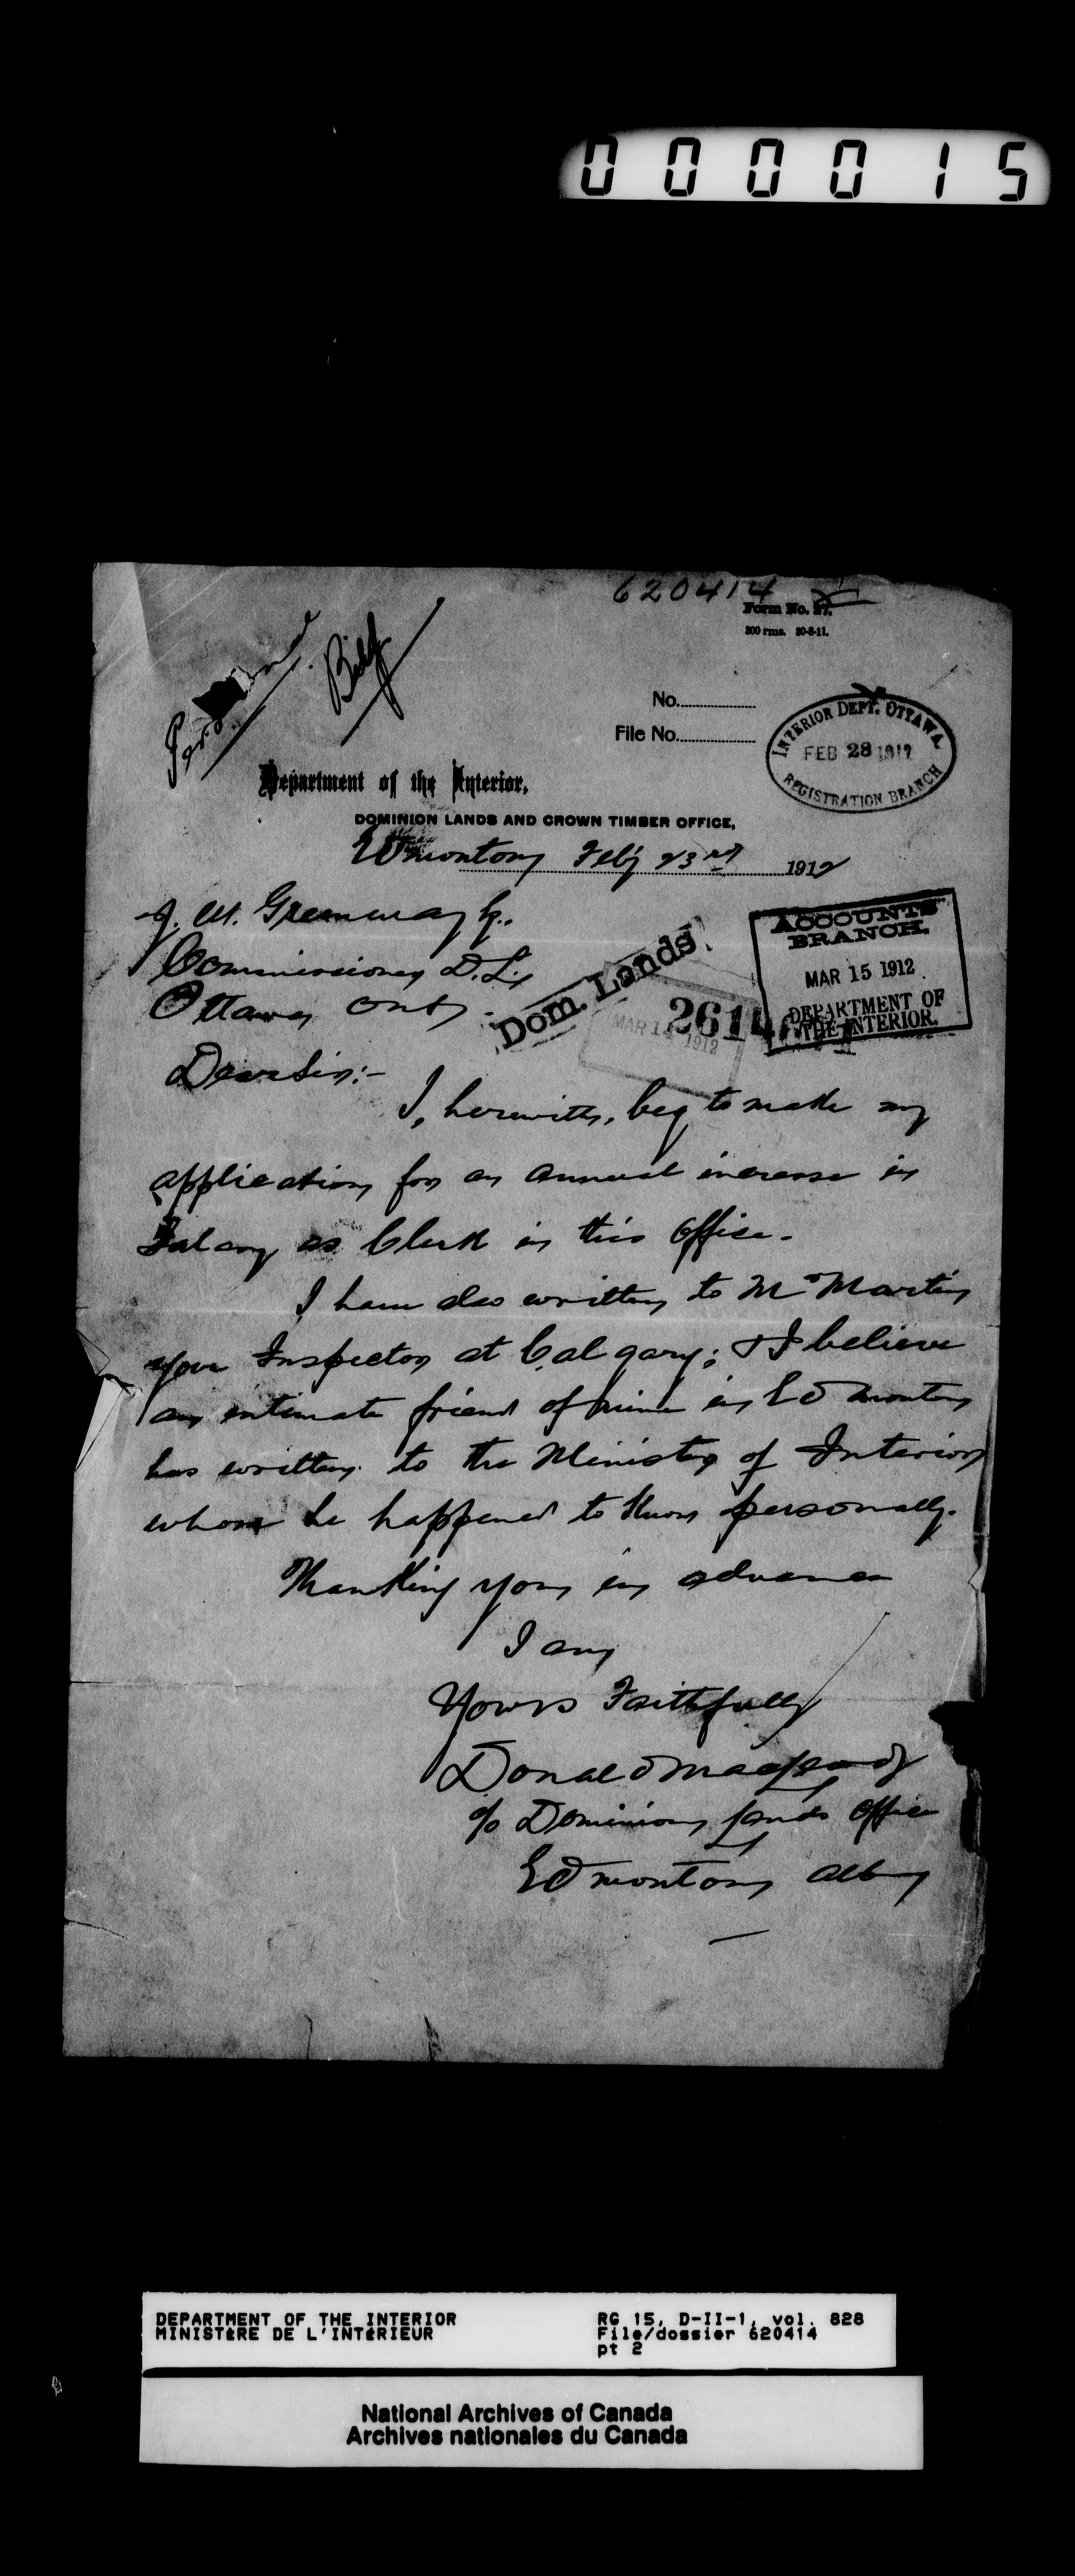 000015
620414
Form No. 27.
300 rms. 30-8-11.
Personal.
No.
File No.
INTERIOR DEPT. OTTAWA.
FEB 28 1912
REGISTRATION BRANCH
Department of the Interior,
DOMINION LANDS AND CROWN TIMBER OFFICE,
Edmonton Feby 23rd 1912
J. W. Greenway Esq.,
Commissioner D.L.,
Ottawa Ont.
Dom. Lands.
MAR 14 1912
2614
ACCOUNTS
BRANCH.
MAR 15 1912
DEPARTMENT OF
THE INTERIOR.
Dear Sir:-
I, herewith, beg to make my
application for an annual increase in
Salary as Clerk in this Office.
I have also written to Mr Martin
your Inspector at Calgary; & I believe
an intimate friend of mine in Edmonton
has written to the Minister of Interior
whom he happened to know personally.
Thanking you in advance
I am
Yours Faithfully
Donald
c/o Dominion Lands Office
Edmonton Alta
DEPARTMENT OF THE INTERIOR
MINISTÈRE DE L'INTÉRIEUR
RG 15, D-II-1, vol. 828
File/dossier 620414
pt 2
National Archives of Canada
Archives nationales du Canada